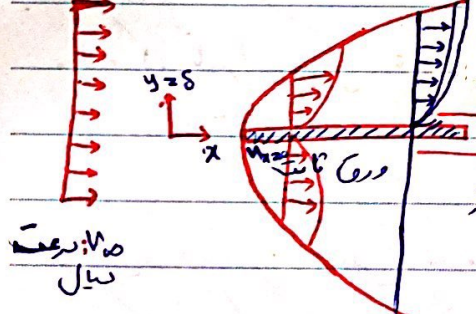 y = δ
x
ورق ثابت
V∞: سرعت
سیال